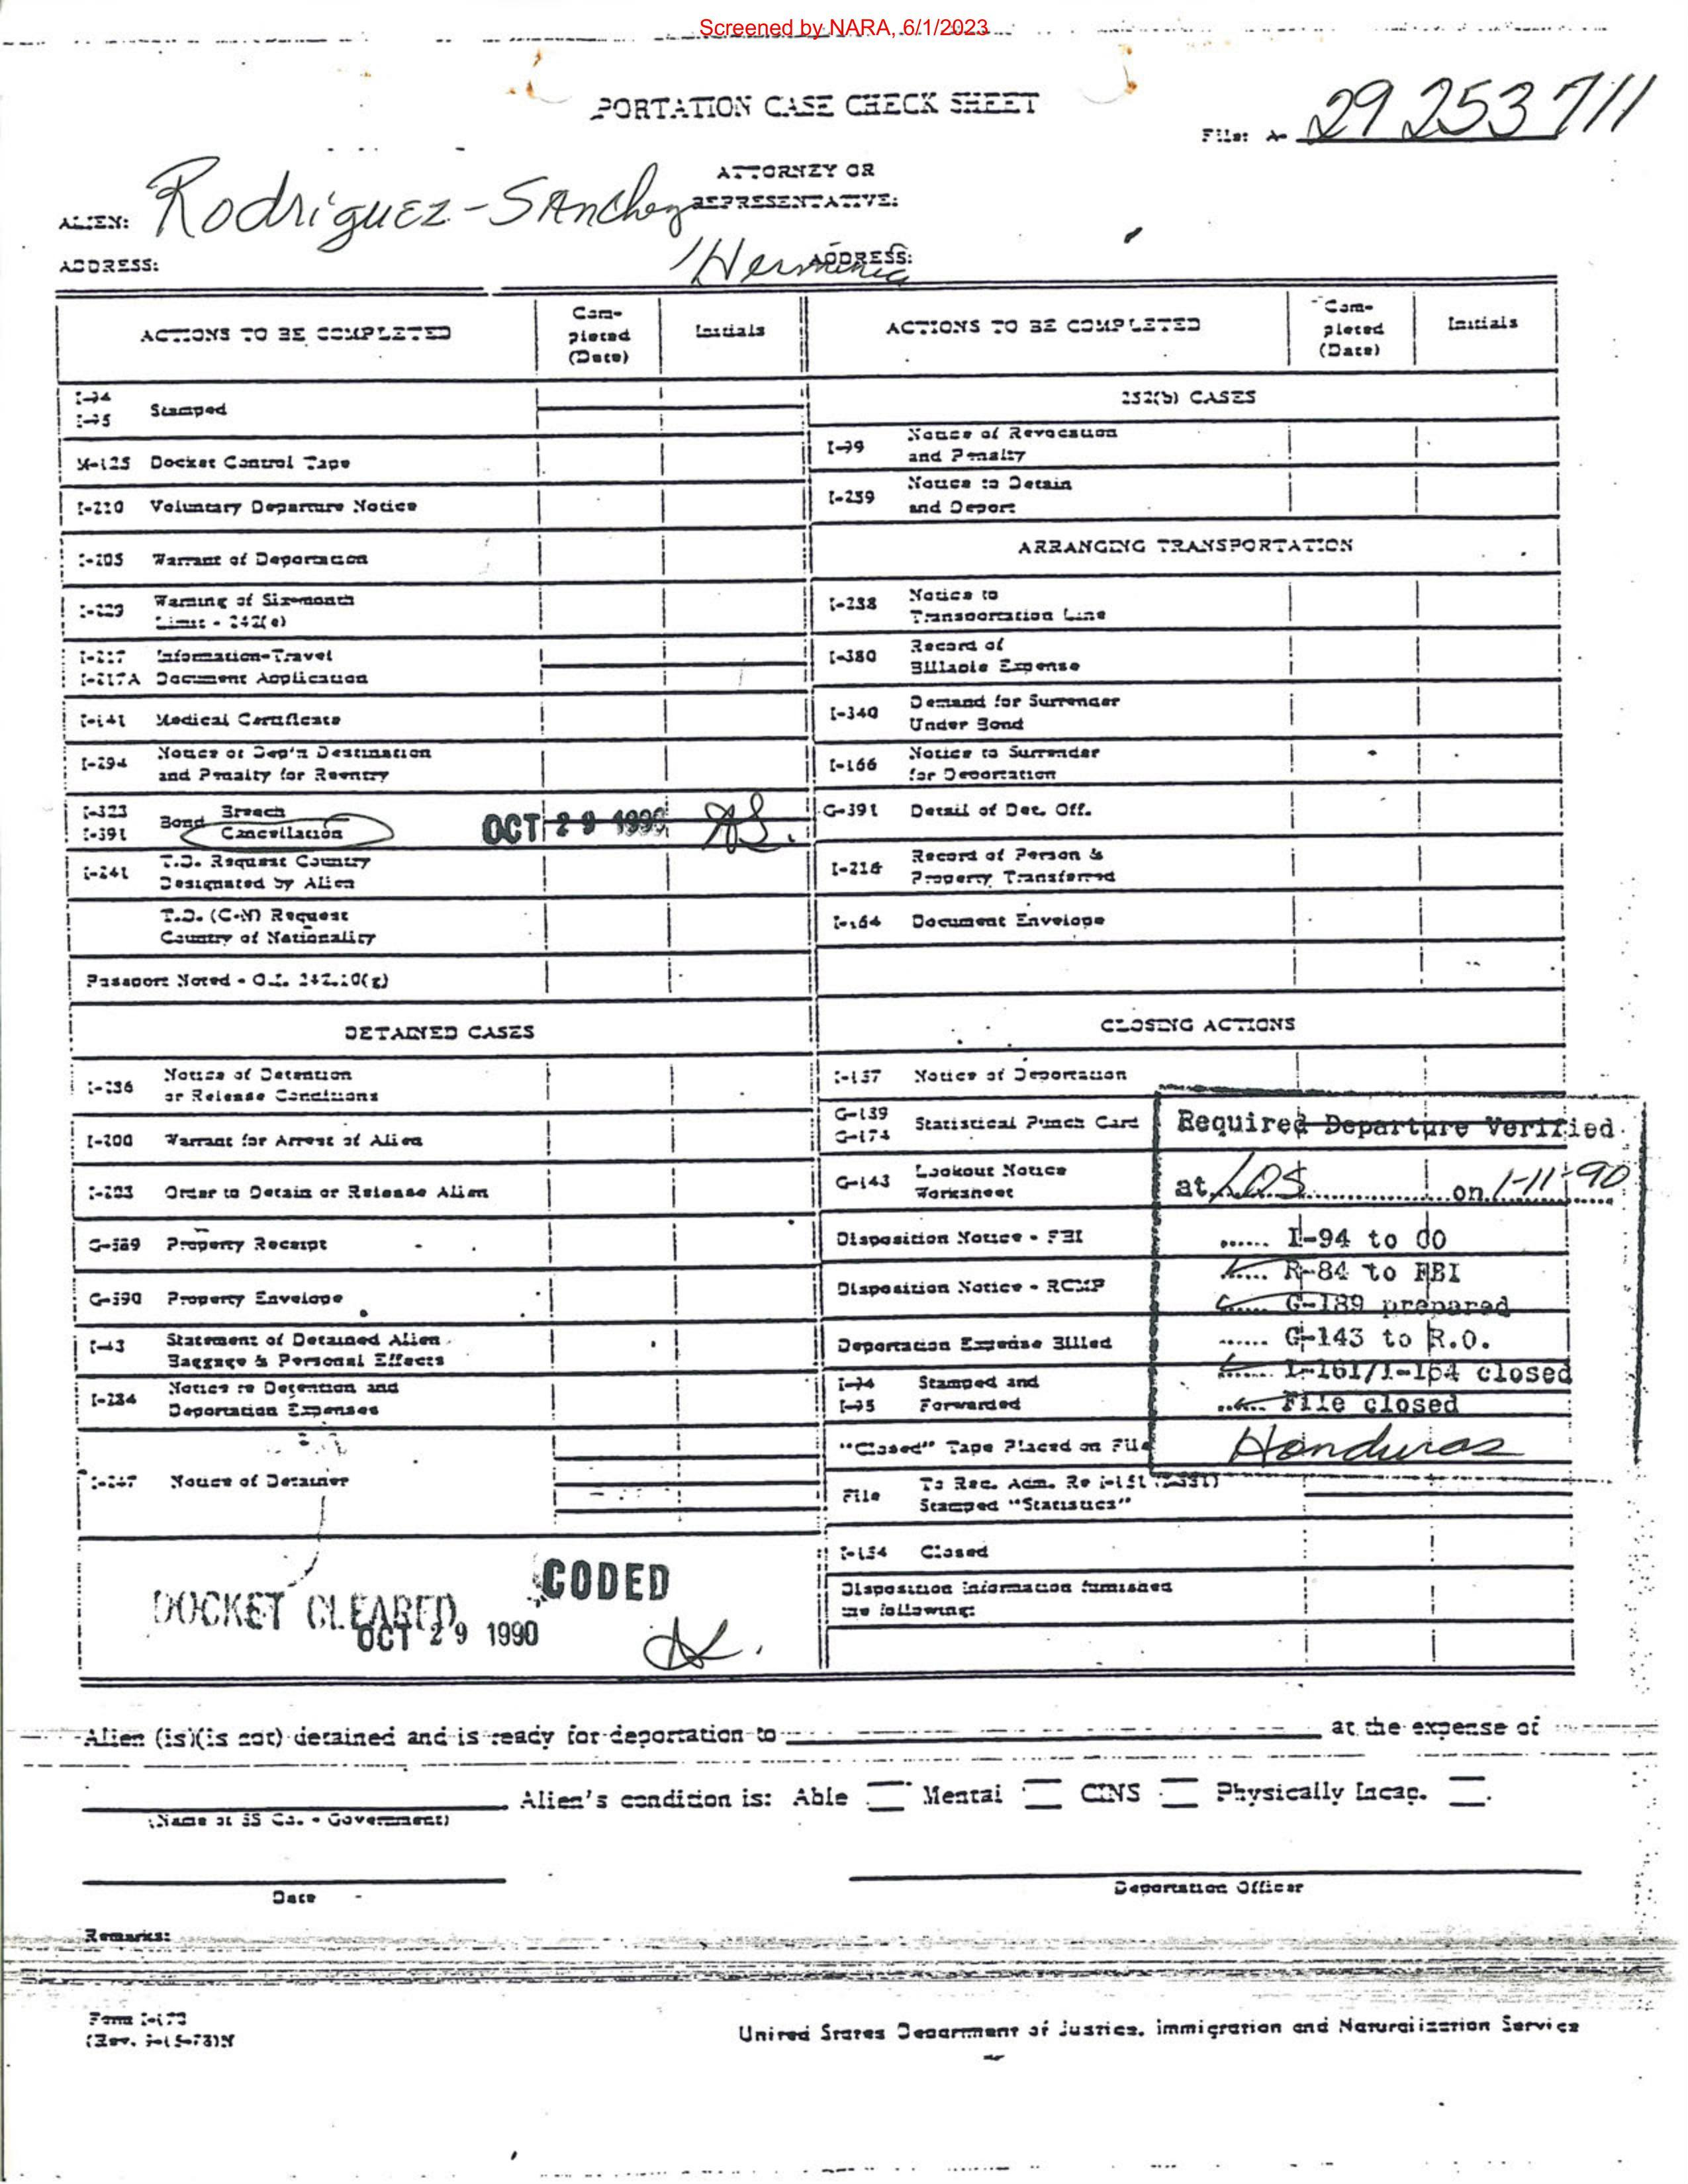 Screened by NARA, 6/1/2023
PORTATION CASE CHECK SHEET
File: A- 29 253 711
ATTORNEY OR
REPRESENTATIVE:
ALIEN: Rodriguez-Sanchez
ADDRESS: ADDRESS:
ACTIONS TO BE COMPLETED
Com-
pleted
(Date)
Initials
ACTIONS TO BE COMPLETED
Com-
pleted
(Date)
Initials
I-94
I-95 Stamped
M-125 Docket Control Tape
I-210 Voluntary Departure Notice
I-205 Warrant of Deportation
I-229 Warning of Six-month
Limit - 242(e)
I-217 Information-Travel
I-217A Document Application
I-141 Medical Certificate
I-294 Notice of Dep'n Destination
and Penalty for Reentry
I-323 Breach
I-391 Bond Cancellation OCT 29 1990
I-241 T.D. Request Country
Designated by Alien
T.D. (C-N) Request
Country of Nationality
Passport Noted - O.I. 242.10(g)
DETAINED CASES
I-286 Notice of Detention
or Release Conditions
I-200 Warrant for Arrest of Alien
I-203 Order to Detain or Release Alien
G-589 Property Receipt
G-590 Property Envelope
I-43 Statement of Detained Alien
Baggage & Personal Effects
I-284 Notice re Detention and
Deportation Expenses
I-247 Notice of Detainer
DOCKET CLEARED
CODED
OCT 29 1990
252(b) CASES
I-99 Notice of Revocation
and Penalty
I-259 Notice to Detain
and Deport
ARRANGING TRANSPORTATION
I-288 Notice to
Transportation Line
I-380 Record of
Billable Expense
I-340 Demand for Surrender
Under Bond
I-166 Notice to Surrender
for Deportation
G-391 Detail of Det. Off.
I-216 Record of Person &
Property Transferred
Document Envelope
CLOSING ACTIONS
I-157 Notice of Deportation
G-189
G-174 Statistical Punch Card
G-143 Lookout Notice
Worksheet
Disposition Notice - FBI
Disposition Notice - RCMP
Deportation Expense Billed
I-94 Stamped and
I-95 Forwarded
"Closed" Tape Placed on File
File To Rec. Adm. Re I-151
Stamped "Statistics"
I-154 Closed
Disposition information furnished
the following:
Required Departure Verified
at LOS on 1-11-90
I-94 to do
R-84 to FBI
G-189 prepared
G-143 to R.O.
I-161/I-154 closed
File closed
Honduras
Alien (is)(is not) detained and is ready for deportation to at the expense of
Alien's condition is: Able Mental CINS Physically Incap.
(Name of SS Co. - Government)
Date
Deportation Officer
Remarks:
Form I-170
United States Department of Justice, Immigration and Naturalization Service